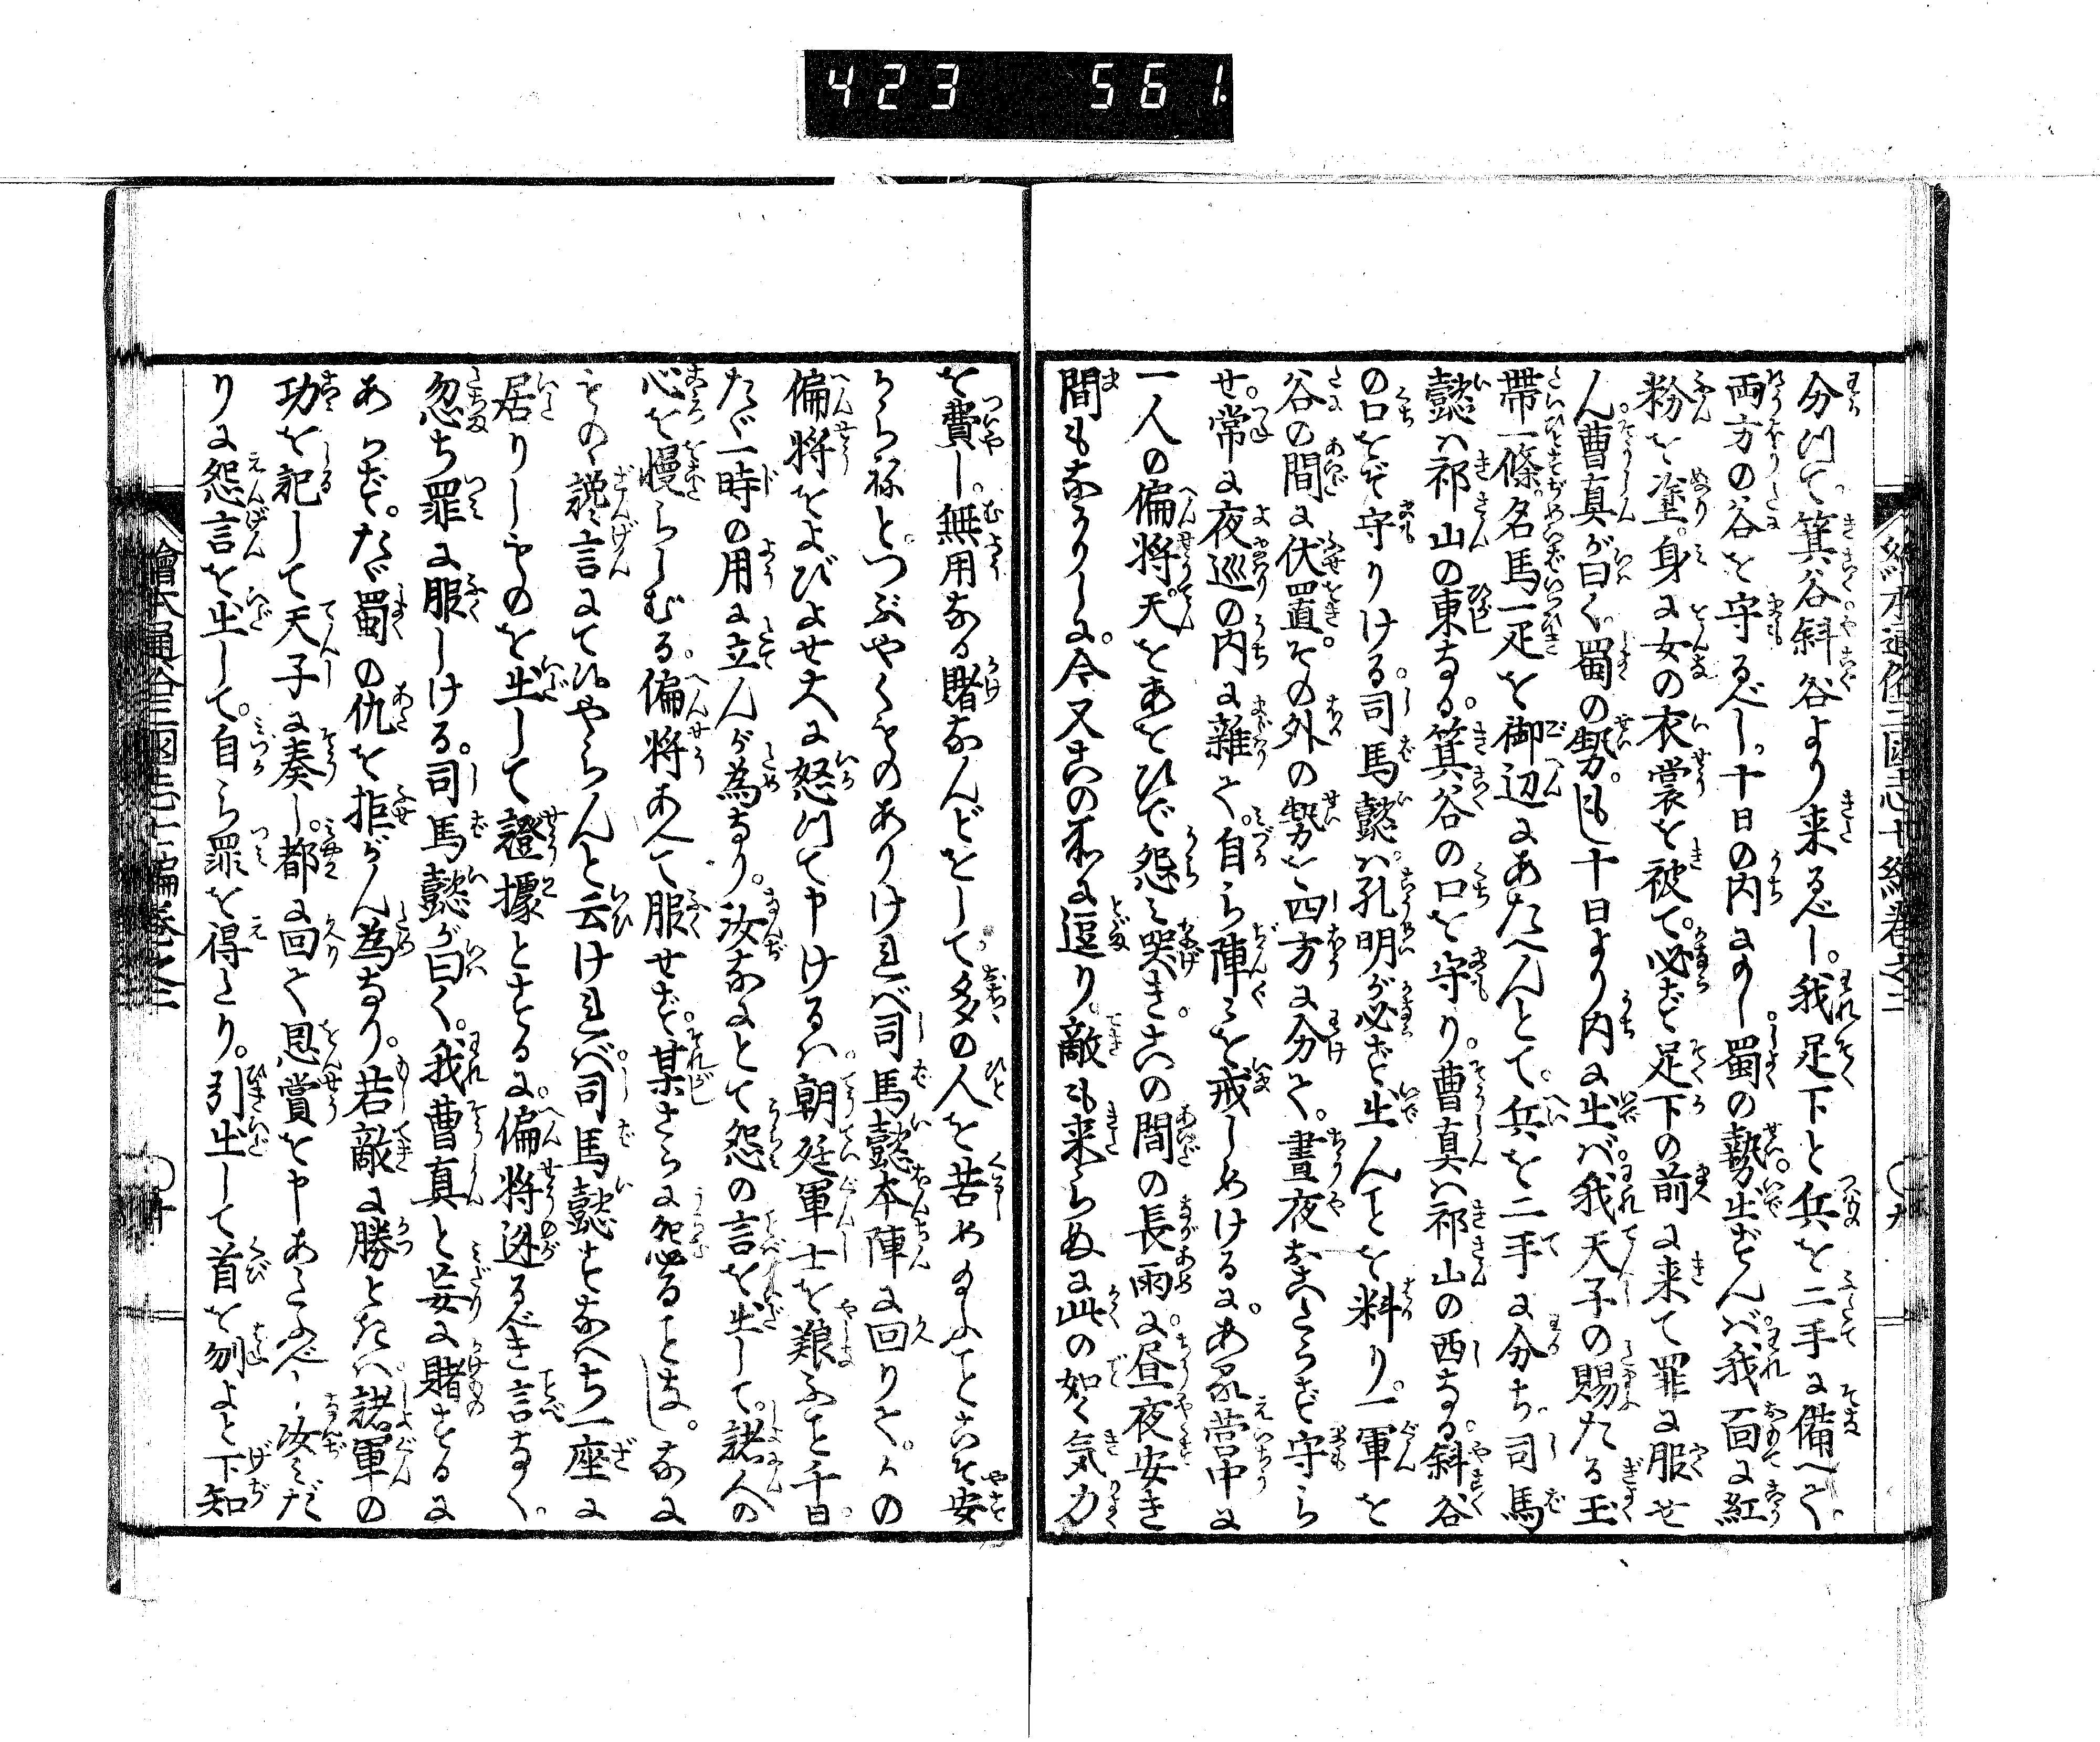 423 561.
分つて。箕谷斜谷より来るべし。我足下と兵を二手に備へて。
両方の谷を守るべし。十日の内に
蜀の勢出ずんば。我面に紅
粉を塗。身に女の衣裳を被て。必ず足下の前に来て罪に服せ
ん。曹真が曰く。蜀の勢。もし十日より内に出ば。我天子の賜たる玉
帯一條。名馬一疋を御辺にあたへんとて。兵を二手に分ち。司馬
懿は祁山の東なる。箕谷の口を守り。曹真は祁山の西なる。斜谷
の口をぞ守りける。司馬懿は。孔明が必ず出んことを料り。一軍を
谷の間に伏置。その外の勢を四方に分て。昼夜おこたらず守ら
せ。常に夜巡の内に雑て。自ら陣々を戒しめけるに。ある営中に
一人の偏将。天をあをひで怨み哭き。この間の長雨に。昼夜安き
間もなかりしに。今又この所に逗り。敵も来らぬに此の如く気力
を費し。無用なる賭なんどをして。多の人を苦めたまふことこそ安
からねと。つぶやくものありければ。司馬懿本陣に回りて。かの
偏将をよびよせ大に怒つて申けるは。朝廷軍士を養ふこと千日。
たゞ一時の用に立んが為なり。汝なにとて怨の言を出して。諸人の
心を慢らしむる。偏将あへて服せず。某さらに怨ることなし。なに
ものゝ讒言にて候やらんと云ければ。司馬懿すなはち一座に
居りしものを出して證據とするに。偏将逃るべき言なく。
忽ち罪に服しける。司馬懿が曰く。我曹真と妄に賭するに
あらず。たゞ蜀の仇を拒がん為なり。若敵に勝ときは。諸軍の
功を記して天子に奏し。都に回て恩賞を申あたふべし。汝みだ
りに怨言を出して。自ら罪を得たり。引出して首を刎よと下知
繪本通俗三國志七編巻之二